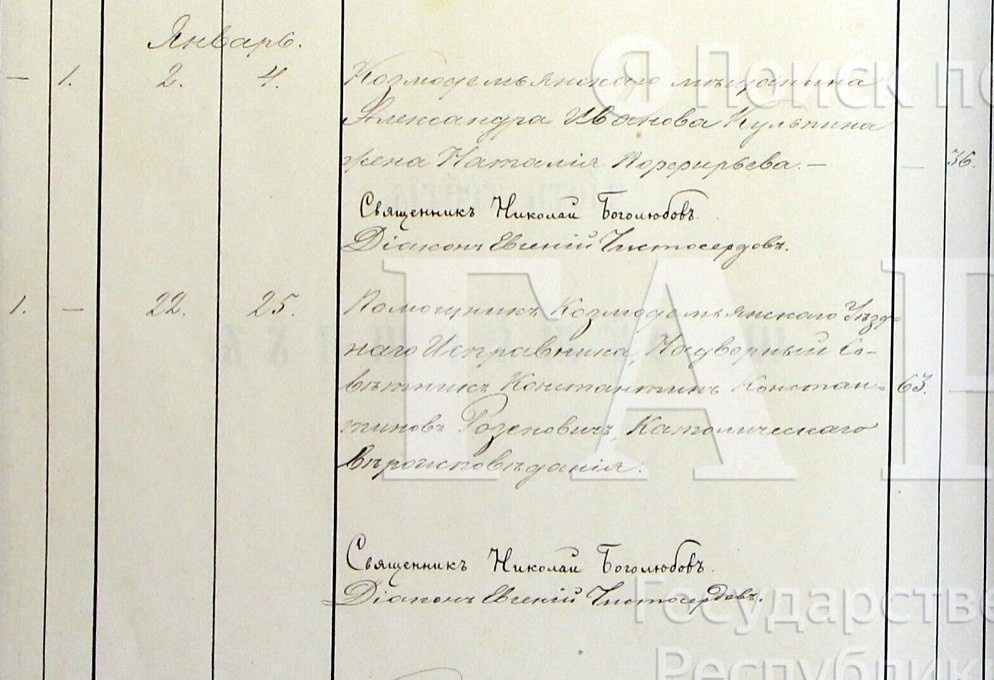 Январь.
— 1. 2. 4. Козмодемьянскаго мѣщанина
Александра Иванова Кульпина
жена Наталія Порфирьева. — — 36.
Священникъ Николай Боголюбовъ.
Діаконъ Евгеній Чистосердовъ.
1. — 22. 25. Помощникъ Козмодемьянскаго Уѣзд-
наго Исправника, Надворный Со-
вѣтникъ Константинъ Констан- 63.
тиновъ Розенович, Католическаго
вѣроисповѣданія.
Священникъ Николай Боголюбовъ.
Діаконъ Евгеній Чистосердовъ.
Я Поиск по
ГА
Государстве
Республики